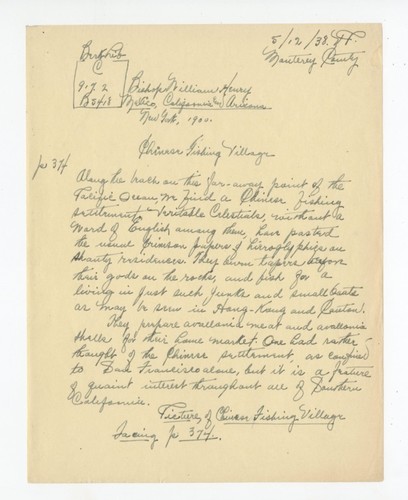 5/12/38. H.
Monterey County
C
917.2
B5418
Bishop William Henry
Mexico, California & Arizona
New York, 1900.
Chinese Fishing Village
p 374
Along the beach on this far-away point of the
Pacific Ocean, we find a Chinese fishing
settlement. Veritable Celestials, without a
word of English among them, have pasted
the usual crimson papers of hieroglyphics on
shanty residences. They burn tapers before
their gods on the rocks, and fish for a
living in just such junks and small boats
as may be seen in Hong-Kong and Canton.
They prepare avallonia meat and avallonia
shells for their home market. One had rather
thought of the Chinese settlement, as confined
to San Francisco alone, but it is a feature
of quaint interest throughout all of Southern
California.
Picture, of Chinese Fishing Village
Facing p 374.